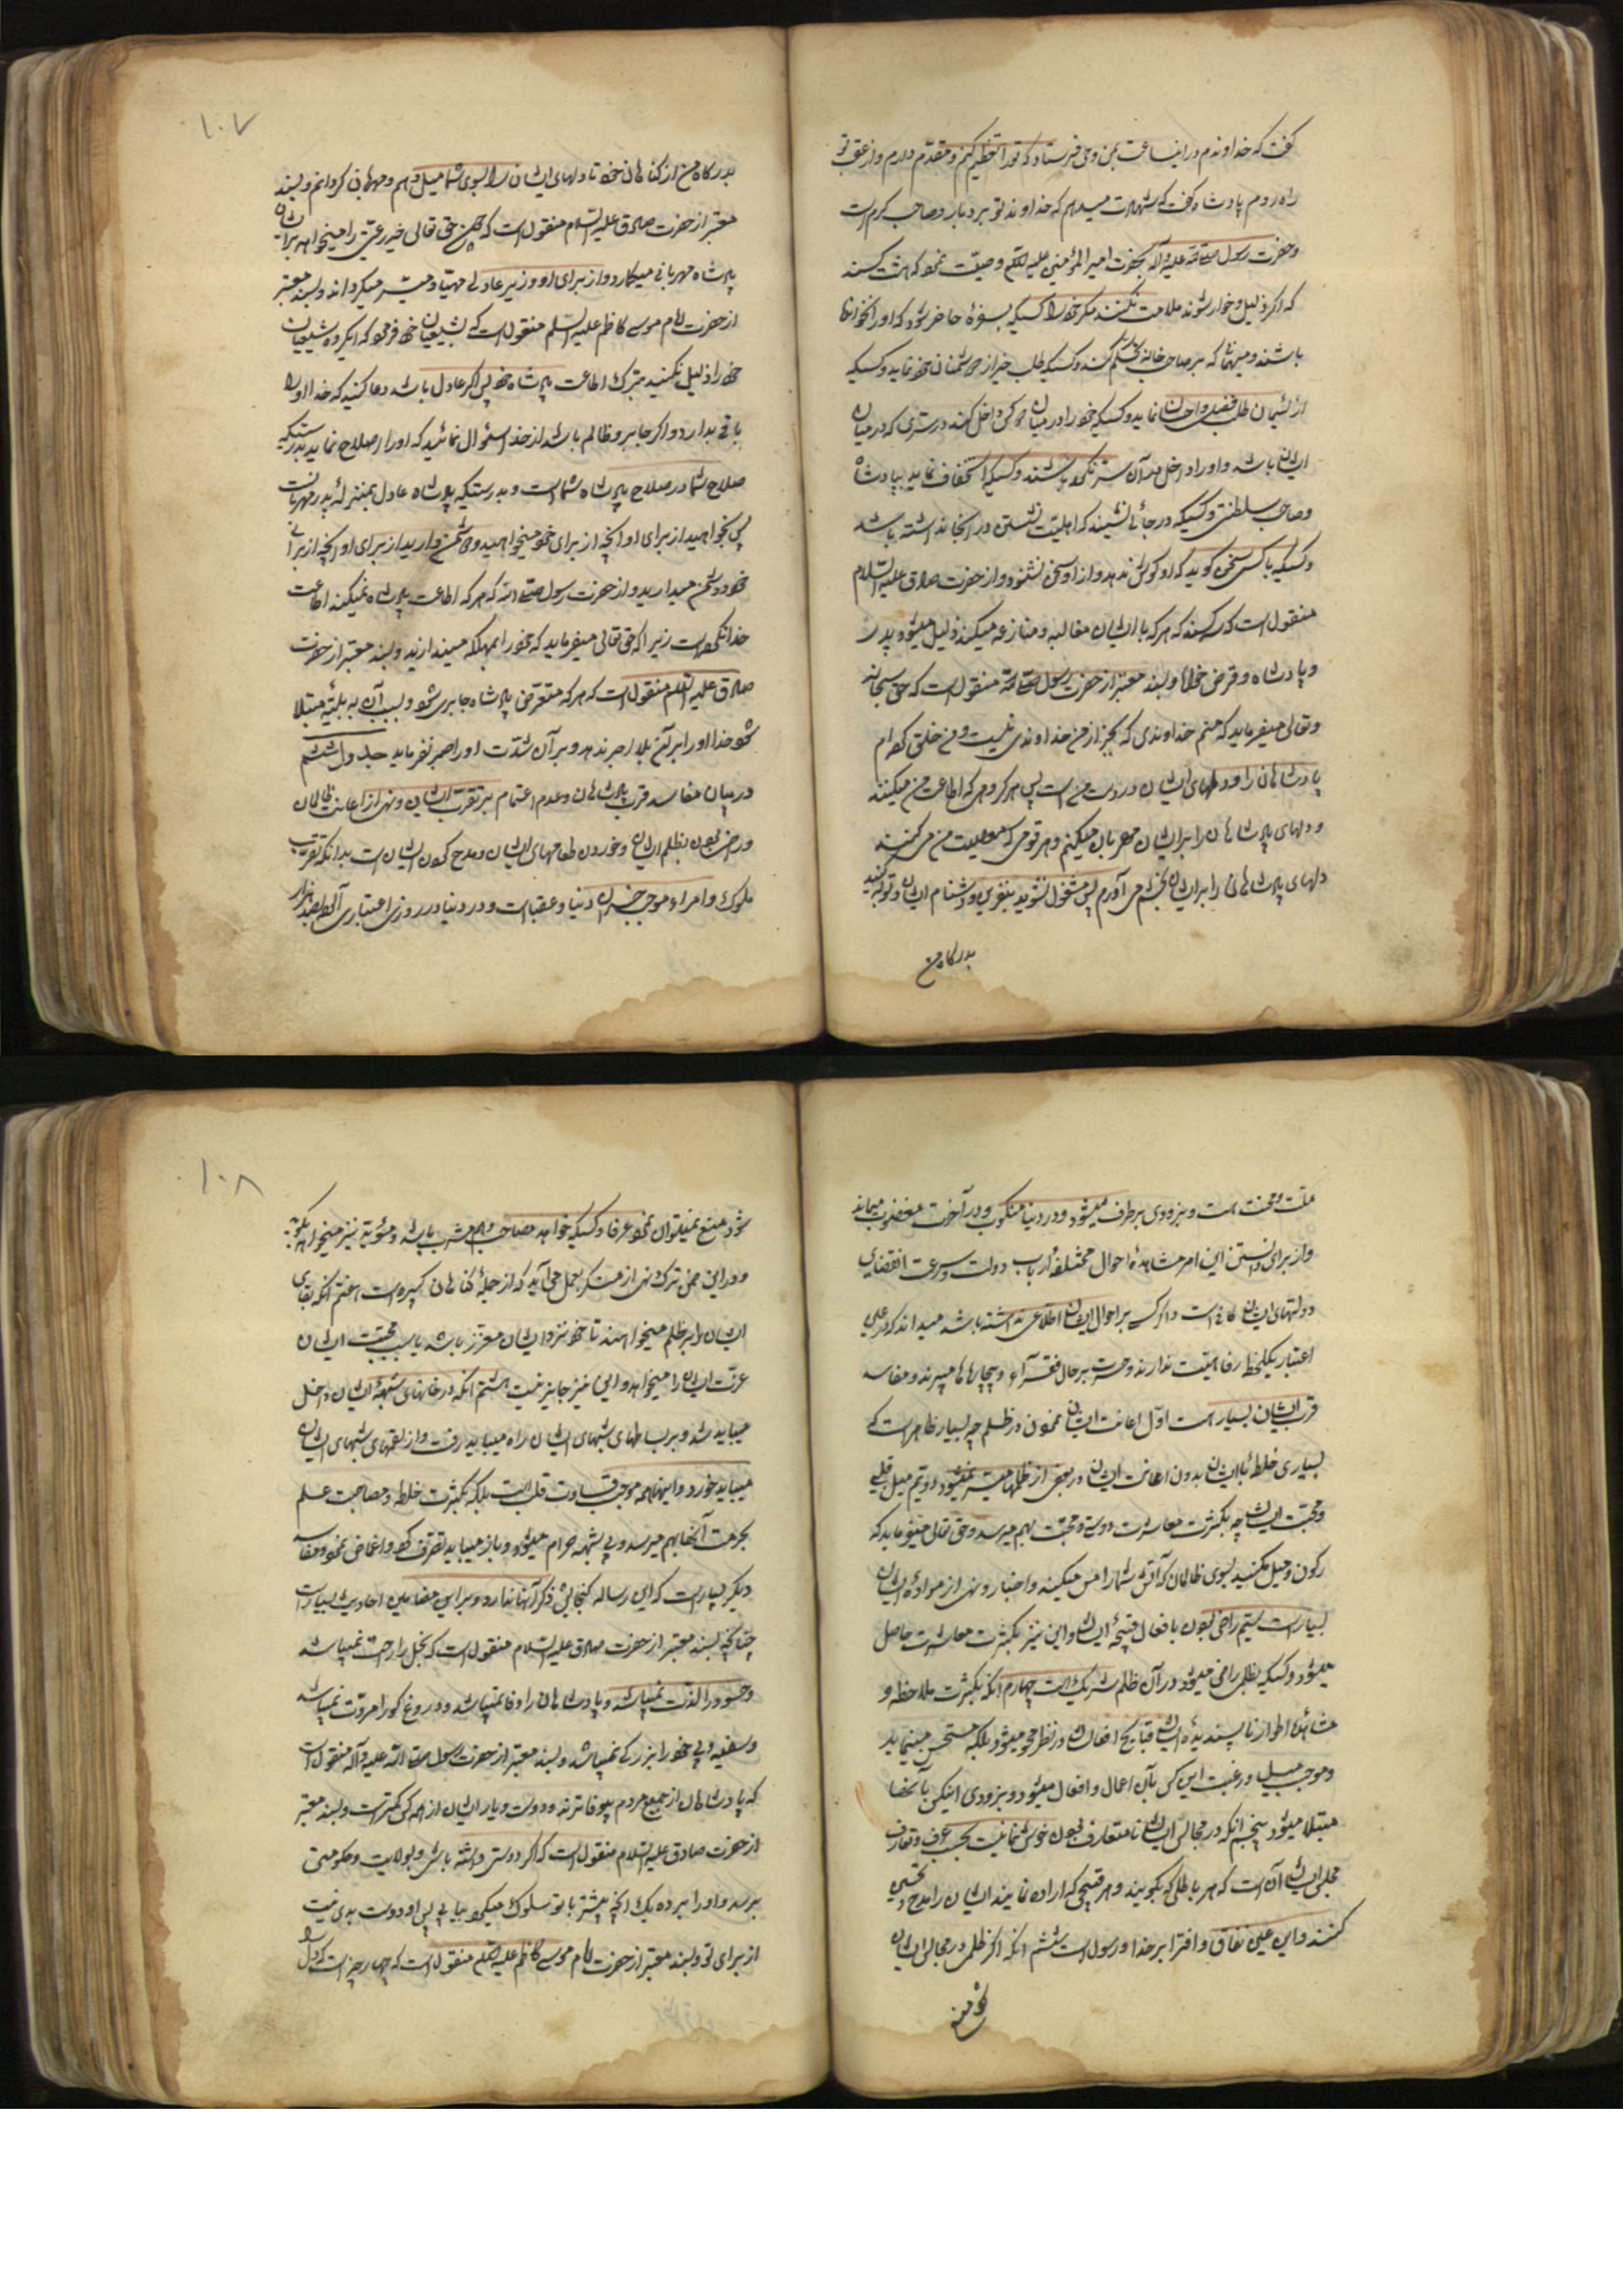 گفت که خداوندم در این ساعت بمن وحی فرستاد که تو را تعظیم کنم و مقدم دارم و از عقب تو
راه روم پادشاه گفت که شهادت میدهم که خداوند تو بردبار و صاحب کرم است
و حضرت رسول صلی الله علیه و آله بحضرت امیر المؤمنین علیه السلام وصیت نمود که هشت کسند
که اگر ذلیل و خوار شوند ملامت نکنند مگر خود را کسیکه بسفرهٔ حاضر شود که او را نخوانده
باشند و میهمانی که بر صاحب خانه تحکم کند و کسیکه طلب خیر از دشمنان خود نماید و کسیکه
از لئیمان طلب فضل و احسان نماید و کسیکه خود را در میان دو کس داخل کند در سری که در میان
ایشان باشد و او را داخل در آن سر نکرده باشند و کسیکه استخفاف نماید بپادشاه
و صاحب سلطنتی و کسیکه در جائی نشیند که اهلیت نشستن در آنجا نداشته باشد
و کسیکه با کسی سخن گوید که او گوش ندهد و از او سخن نشنود و از حضرت صادق علیه السلام
منقول است که سه کسند که هر که با ایشان مغالبه و منازعه میکند ذلیل میشود پدر
و پادشاه و قرض خواه و بسند معتبر از حضرت رسول صلی الله منقول است که حق سبحانه
و تعالی میفرماید که منم خداوندی که بجز از من خداوندی نیست و من خلق کرده ام
پادشاهان را و دلهای ایشان در دست من است پس هر گروهی که اطاعت من میکنند
دلهای پادشاهان را بر ایشان مهربان میکنم و هر قومی که معصیت من می کنند
دلهای پادشاهان را بر ایشان بخشم می آورم پس مشغول نشوید بنفرین و دشنام ایشان و توبه کنید
بدرگاه من
۱۰۷
بدرگاه من از گناهان خود تا دلهای ایشان را بسوی شما میل دهم و مهربان گردانم و بسند
معتبر از حضرت صادق علیه السلام منقول است که چون حق تعالی خیر رعیتی را میخواهد بر ایشان
پادشاه مهربانی میگمارد و از برای او وزیر عادلی مهیا و میسر میگرداند و بسند معتبر
از حضرت امام موسی کاظم علیه السلام منقول است که بشیعیان خود فرمود که ای گروه شیعیان
خود را ذلیل نکنید بترک اطاعت پادشاه خود پس اگر عادل باشد دعا کنید که خدا او را
باقی بدارد و اگر جابر و ظالم باشد از خدا سئوال نمائید که او را اصلاح نماید بدرستیکه
صلاح شما در صلاح پادشاه شما است و بدرستیکه پادشاه عادل بمنزلهٔ پدر مهربان است
پس بخواهید از برای او آنچه از برای خود میخواهید و دشمن دارید از برای او آنچه از برای
خود دشمن میدارید و از حضرت رسول صلی الله که هر که اطاعت پادشاه نمیکند اطاعت
خدا نکرده است زیرا که حق تعالی میفرماید که خود را بمهلکه میندازید و بسند معتبر از حضرت
صادق علیه السلام منقول است که هر که متعرض پادشاه جابری شود و بسبب آن به بلیه مبتلا
شود خدا او را بر آن بلا اجر ندهد و بر آن شدت او را صبر نفرماید جدول ششم
در بیان مفاسد قرب پادشاهان و عدم اعتماد بر تقرب ایشان و نهی از اعانت ظالمان
و راضی بودن بظلم ایشان و خوردن طعامهای ایشان و مدح کردن ایشان است بدانکه تقرب
ملوک و امراء موجب خسران دنیا و عقباست و در دنیا در روزی اعتباری آلوده بصد هزار
ملت و محنت است و بزودی برطرف میشود و در دنیا منکوب و در آخرت مغضوب میماند
و از برای دانستن این امر مشاهدهٔ احوال مختلفهٔ ارباب دولت و سرعت انقضای
دولتهای ایشان کافی است و اگر کسی بر احوال ایشان اطلاعی داشته باشد میداند که در عین
اعتبار یکلحظه رفاهیت ندارند و حسرت بر حال فقرآء و بیچارها میبرند و مفاسد
قرب ایشان بسیار است اول اعانت ایشان نمودن در ظلم چه بسیار ظاهر است که
بسیاری خلطهٔ با ایشان بدون اعانت ایشان در بعضی از ظلمها میسر نمیشود دویم میل قلبی
و محبت ایشان چه بکثرت معاشرت دوستی و محبت بهم میرسد و حق تعالی میفرماید که
رکون و میل مکنید بسوی ظالمان که آتش شما را مس میکند و اخبار و نهی از موادهٔ ایشان
بسیار است سیم راضی بودن بافعال قبیحهٔ ایشان و این نیز بکثرت معاشرت حاصل
میشود و کسیکه بظلمی راضی میشود در آن ظلم شریک است چهارم آنکه بکثرت ملاحظه و
مشاهدهٔ اطوار ناپسندیدهٔ ایشان قبایح افعال ایشان در نظر محو میشود بلکه مستحسن مینماید
و موجب میل و رغبت این کس بآن اعمال و افعال میشود و بزودی اینکس بآنها
مبتلا میشود پنجم آنکه در مجالس ایشان نامتعارف بودن خوش نماینیست بحسب عرف و تعارف
مجلس ایشان آن است که هر باطلی که بگویند و هر قبیحی که اراده نمایند ایشان را مدح و تحسین
کنند و این عین نفاق و افترا بر خدا و رسول است ششم آنکه اگر ظلمی در مجالس ایشان
شود منع
۱۰۸
شود منع نمیتوان نمود عرفا و کسیکه خواهد مصاحب و هم مشرب باشد
و در این ضمن ترک نهی از منکر بعمل می آید که از جملهٔ گناهان کبیره است هفتم آنکه بقای
ایشان را بر ظلم میخواهند تا خود نزد ایشان معزز باشد یا بسبب محبت ایشان
عزت ایشان را میخواهد و این نیز جایز نیست هشتم آنکه در خانهای شبههٔ ایشان داخل
میباید شد و بر بساطهای شبهای ایشان راه میباید رفت و از لقمهای شبهای ایشان
میباید خورد و اینها همه موجب قساوت قلب است بلکه بکثرت خلطه و مصاحبت علم
بحرمت آنها بهم میرسد و بی شبهه حرام میشود و باز میباید تصرف کرد و اغماض نمود و مفاسد
دیگر بسیار است که این رساله گنجایش ذکر آنها ندارد و بر این مضامین احادیث بسیار است
چنانچه بسند معتبر از حضرت صادق علیه السلام منقول است که بخیل را راحت نمیباشد
و حسود را لذت نمیباشد و پادشاهان را وفا نمیباشد و دروغ گو را مروت نمیباشد
و سفیه و بی خرد را بزرگی نمیباشد و بسند معتبر از حضرت رسول صلی الله علیه و آله منقول است
که پادشاهان از جمیع مردم بیوفاترند و دوست و یار ایشان از همه کس کمتر است و بسند معتبر
از حضرت صادق علیه السلام منقول است که اگر دوستی داشته باشی و بولایت و حکومتی
برسد و او را بر ده یک آنچه پیشتر با تو سلوک میکرد بیابی پس او دوست بدی نیست
از برای تو و بسند معتبر از حضرت امام موسی کاظم علیه السلام منقول است که چهار چیز است که دل را